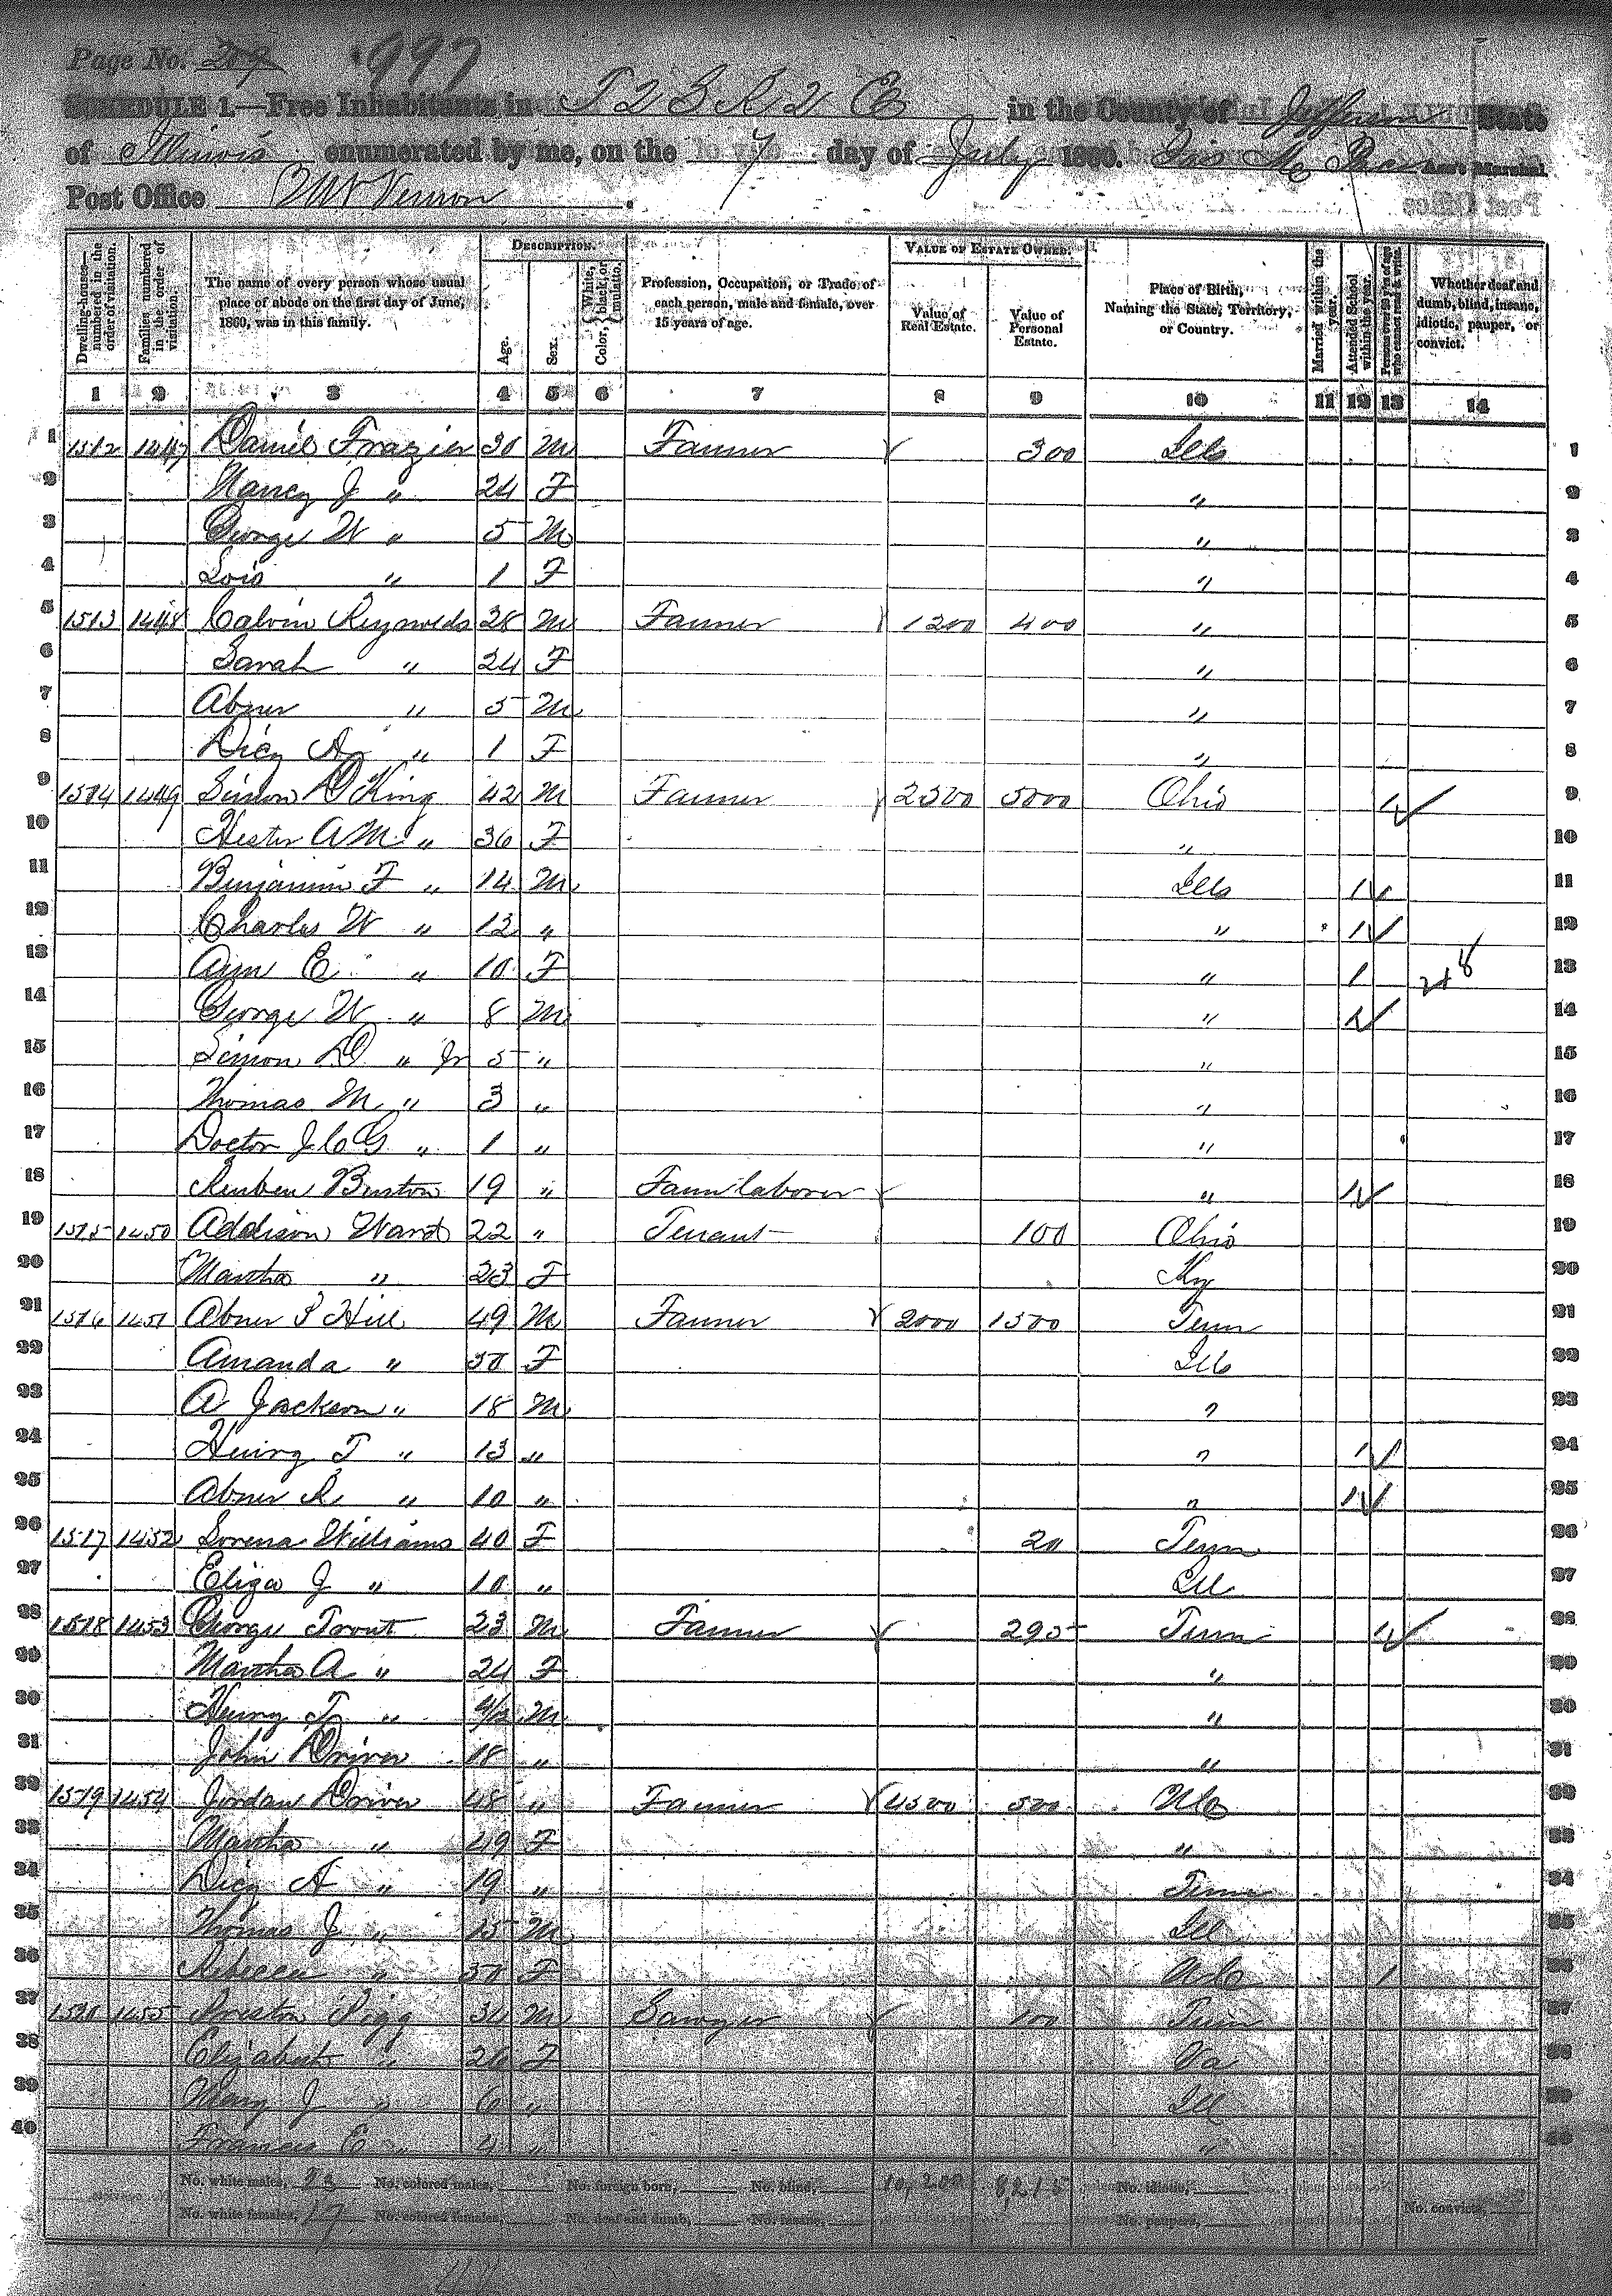 Page No. 209 997
SCHEDULE 1.—Free Inhabitants in T 2 S R 2 E in the County of Jefferson State
of Illinois enumerated by me, on the 7 day of July 1860. Ass't Marshal.
Post Office Mt Vernon.
DESCRIPTION. VALUE OF ESTATE OWNED.
Dwelling-house—numbered in the order of visitation. Families numbered in the order of visitation. The name of every person whose usual place of abode on the first day of June, 1860, was in this family. Age. Sex. Color, {White, black, or mulatto. Profession, Occupation, or Trade of each person, male and female, over 15 years of age. Value of Real Estate. Value of Personal Estate. Place of Birth, Naming the State, Territory, or Country. Married within the year. Attended School within the year. Persons over 20 y'rs of age who cannot read & write. Whether deaf and dumb, blind, insane, idiotic, pauper, or convict.
1 2 3 4 5 6 7 8 9 10 11 12 13 14
1 1512 1447 Daniel Frazier 30 M Farmer 300 Ills 1
2 Nancy J " 24 F " 2
3 George W " 5 M " 3
4 Lois " 1 F " 4
5 1513 1448 Calvin Reynolds 28 M Farmer 1200 400 " 5
6 Sarah " 24 F " 6
7 Abner " 5 M " 7
8 Dicy A " 1 F " 8
9 1514 1449 Simon D King 42 M Farmer 2500 5000 Ohio 1 9
10 Hester A M " 36 F " 10
11 Benjamin F " 14 M Ills 1 11
12 Charles W " 12 " " 1 12
13 Ann E " 10 F " 1 13
14 George W " 8 M " 1 14
15 Simon D " Jr 5 " " 15
16 Thomas M " 3 " " 16
17 Doctor J C G " 1 " " 17
18 Reuben Burton 19 " Farm laborer " 1 18
19 1515 1450 Addison Ward 22 " Tenant 100 Ohio 19
20 Martha " 23 F Ky 20
21 1516 1451 Abner P Hill 49 M Farmer 2000 1500 Tenn 21
22 Amanda " 50 F Ill 22
23 A Jackson " 18 M " 23
24 Henry T " 13 " " 1 24
25 Abner R " 10 " " 1 25
26 1517 1452 Lorena Williams 40 F 20 Tenn 26
27 Eliza J " 10 " Ill 27
28 1518 1453 George Trout 23 M Farmer 295 Tenn 1 28
29 Martha A " 24 F " 29
30 Henry T " 4/12 M " 30
31 John Driver 18 " " 31
32 1519 1454 Jordan Driver 48 " Farmer 4500 500 32
33 Martha " 49 F " 33
34 Dicy A " 19 " Tenn 34
35 Thomas J " 15 M Ill 35
36 Rebecca " 50 F N C 1 36
37 1520 1455 Preston Pigg 34 M Sawyer 100 Tenn 37
38 Elizabeth " 26 F Va 38
39 Mary J " 6 " Ill 39
40 Frances E " 4 " " 40
No. white males, 23 No. colored males, No. foreign born, No. blind, 10,200 8,215 No. idiotic,
No. white females, 17 No. colored females, No. deaf and dumb, No. insane, No. paupers, No. convicts,